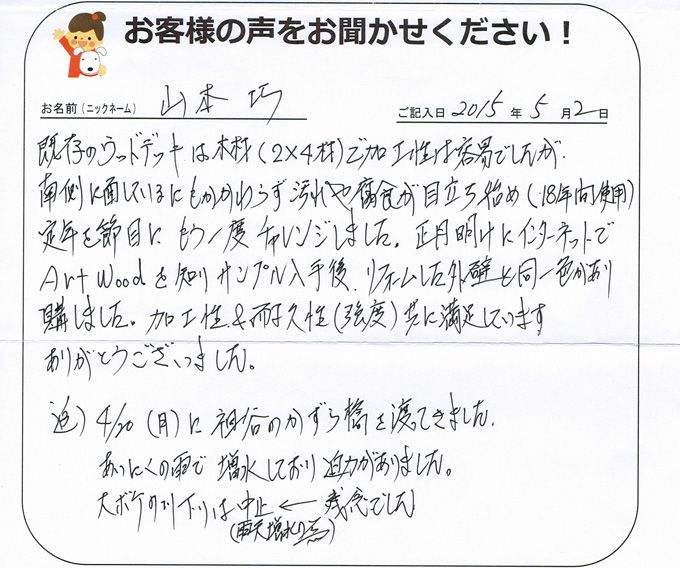 お客様の声をお聞かせください！
お名前（ニックネーム） 山本 巧 ご記入日 2015 年 5 月 2 日
既存のウッドデッキは木材（2×4材）で加工性は容易でしたが、
南側に面しているにもかかわらず汚れや腐食が目立ち始め（18年間使用）
定年を節目にもう一度チャレンジしました。正月明けにインターネットで
Art Woodを知りサンプル入手後、リフォームした外壁と同一色があり
購しました。加工性&耐久性（強度）共に満足しています
ありがとうございました。
追）4/20（月）に祖谷のかずら橋を渡ってきました。
あいにくの雨で増水しており迫力がありました。
大ボケの川下りは中止 ← 残念でした
（雨天増水の為）